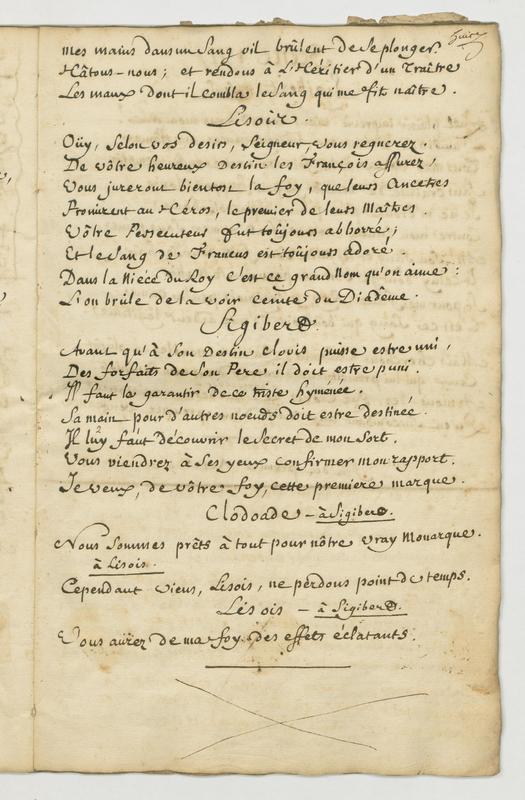 mes mains dans un Sang vil brûlent de se plonger.
Hâtons-nous; et rendons à L'Héritier d'un Traître
Les maux dont il combla le Sang qui me fit naître.
Lisois.
Oüy, Selon vos desirs, Seigneur, vous regnerez.
De vôtre heureux Destin les François assurez,
Vous jureront bientost la foy, que leurs Ancetres
Promirent au Héros, le premier de leurs Maîtres.
Vôtre Persecuteur fut toûjours abhorré;
Et le Sang de Francus est toûjours adoré.
Dans la Niéce du Roy c'est ce grand Nom qu'on aime:
L'on brûle de la voir ceinte du Diadême.
Sigiberd.
Avant qu'à Son Destin Clovis puisse estre uni,
Des forfaits de Son Pere il doit estre puni.
Il faut la garantir de ce triste hyménée.
Sa main pour d'autres noeuds doit estre destinée.
Il luy faut découvrir le Secret de mon Sort.
Vous viendrez à Ses yeux confirmer mon rapport.
Je veux, de vôtre foy, cette premiere marque.
Clodoade - à Sigiberd.
Nous Sommes prêts à tout pour nôtre vray Monarque.
à Lisois.
Cependant viens, Lisois, ne perdons point de temps.
Lisois - à Sigiberd.
Vous aurez de ma foy des effets éclatants.